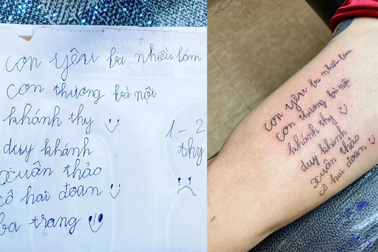 con yêu ba nhiều lắm
con thương bà nội
khánh thy
duy khánh
xuân thảo
cô hai đoan
ba trang
1-2
thy
con yêu ba nhiều lắm
con thương bà nội
khánh thy
duy khánh
xuân thảo
cô hai đoan